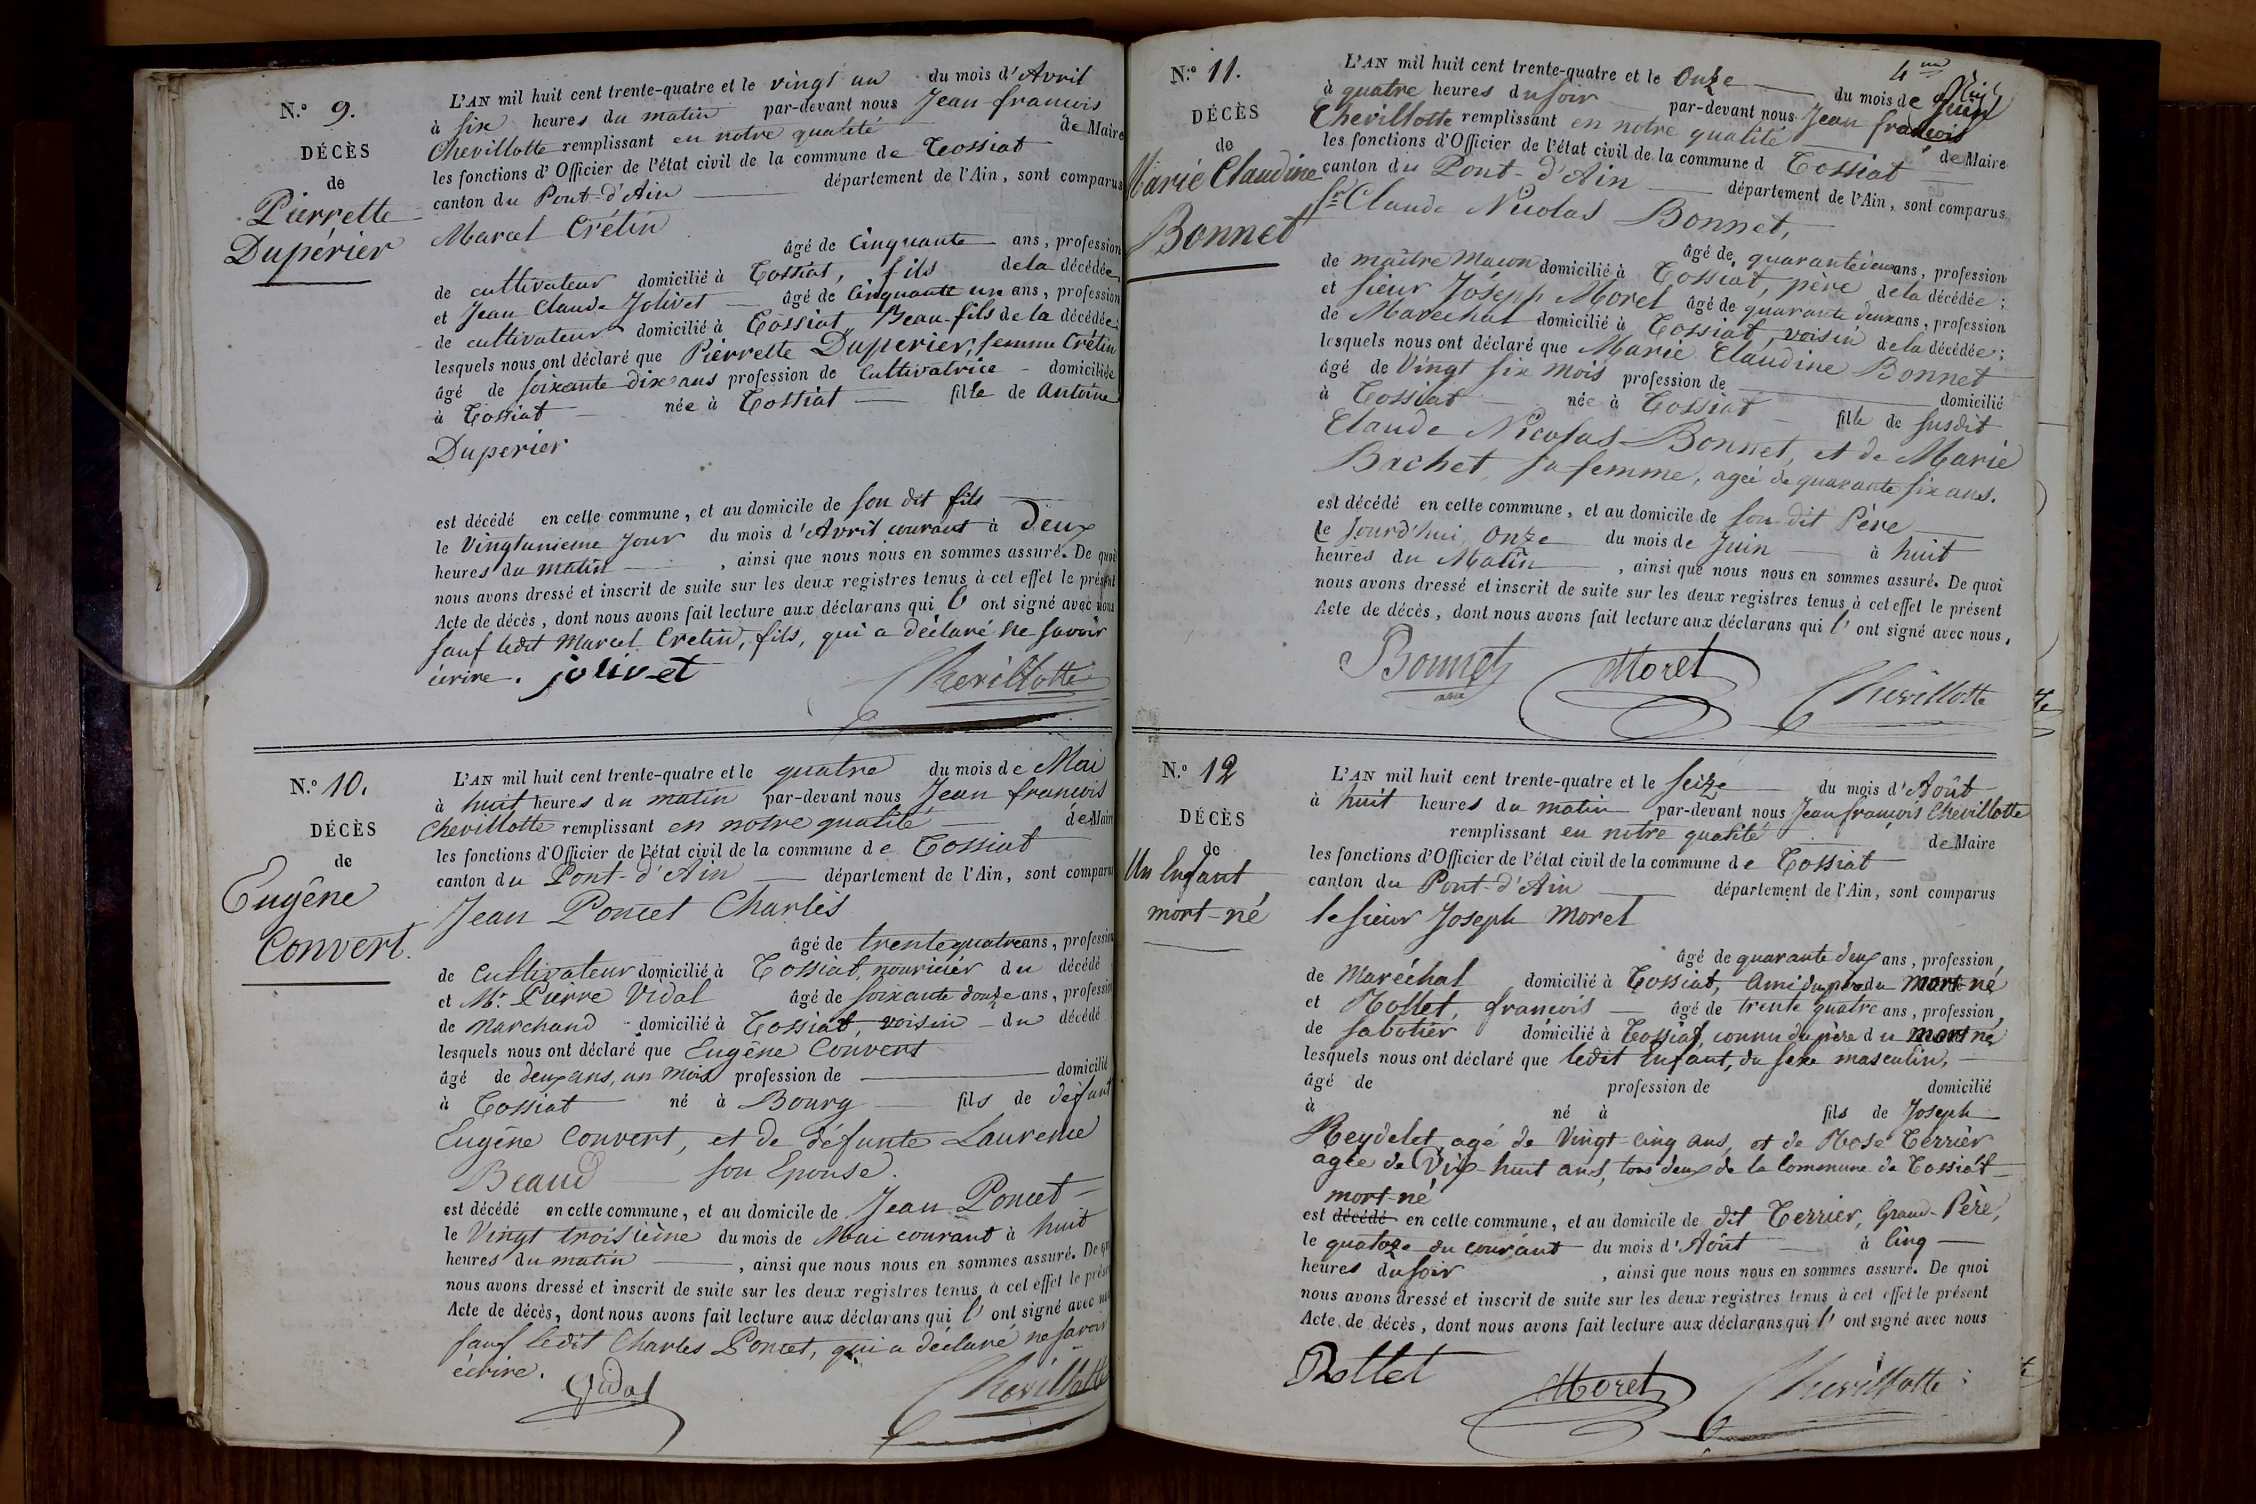 N.º 9.
DÉCÈS
de
Pierrette
Dupérier
L'AN mil huit cent trente-quatre et le vingt un du mois d'Avril
à six heures du matin par-devant nous Jean francois
Chevillotte remplissant en notre qualité de Maire
les fonctions d'Officier de l'état civil de la commune de Tossiat
canton du Pont-d'Ain département de l'Ain, sont comparus
Marcel Crétin
âgé de Cinquante ans, profession
de cultivateur domicilié à Tossiat, fils de la décédée
et Jean Claude Jolivet âgé de Cinquante un ans, profession
de cultivateur domicilié à Tossiat Beau-fils de la décédée
lesquels nous ont déclaré que Pierrette Duperier, femme Crétin
âgé de soixante dix ans profession de Cultivatrice - domiciliée
à Tossiat née à Tossiat fille de Antoine
Duperier
est décédé en cette commune, et au domicile de son dit fils
le Vingtunieme jour du mois d'Avril courant à Deux
heures du matin, ainsi que nous nous en sommes assuré. De quoi
nous avons dressé et inscrit de suite sur les deux registres tenus à cet effet le présent
Acte de décès, dont nous avons fait lecture aux déclarans qui l' ont signé avec nous
sauf ledit Marcel Cretin, fils, qui a déclaré ne savoir
écrire. jolivet Chevillotte
N.º 10.
DÉCÈS
de
Eugêne
Convert.
L'AN mil huit cent trente-quatre et le quatre du mois de Mai
à huit heures du matin par-devant nous Jean francois
Chevillotte remplissant en notre qualité de Maire
les fonctions d'Officier de l'état civil de la commune de Tossiat
canton du Pont-d'Ain département de l'Ain, sont comparus
Jean Poncet Charles
âgé de trente quatre ans, profession
de Cultivateur domicilié à Tossiat, nouricier du décédé
et Mr. Pierre Vidal âgé de soixante douze ans, profession
de Marchand - domicilié à Tossiat, voisin du décédé
lesquels nous ont déclaré que Eugêne Convert
âgé de deux ans, un mois profession de domicilié
à Tossiat né à Bourg fils de défunt
Eugêne Convert, et de défunte Laurence
Beaud son Epouse.
est décédé en cette commune, et au domicile de Jean Poncet
le Vingt troisième du mois de Mai courant à huit
heures du matin, ainsi que nous nous en sommes assuré. De
nous avons dressé et inscrit de suite sur les deux registres tenus à cet effet le
Acte de décès, dont nous avons fait lecture aux déclarans qui l' ont signé avec
sauf ledit Charles Poncet, qui a déclaré ne savoir
écrire. Vidal Chevillotte
N.º 11.
DÉCÈS
de
Marie Claudine
Bonnet
L'AN mil huit cent trente-quatre et le Onze du mois de Juin
à quatre heures du soir par-devant nous Jean francois
Chevillotte remplissant en notre qualité de Maire
les fonctions d'Officier de l'état civil de la commune d Tossiat
canton du Pont-d'Ain département de l'Ain, sont comparus
Sr. Claude Nicolas Bonnet,
âgé de quarante deux ans, profession
de maître Macon domicilié à Tossiat, père de la décédée;
et sieur Joseph Moret âgé de quarante deux ans, profession
de Maréchal domicilié à Tossiat, voisin de la décédée;
lesquels nous ont déclaré que Marie Claudine Bonnet
âgé de Vingt six mois profession de domicilié
à Tossiat née à Tossiat fille de susdit
Claude Nicolas Bonnet, et de Marie
Bachet, sa femme, agée de quarante six ans.
est décédé en cette commune, et au domicile de son dit Père
le jourd'hui Onze du mois de Juin à huit
heures du Matin, ainsi que nous nous en sommes assuré. De quoi
nous avons dressé et inscrit de suite sur les deux registres tenus à cet effet le présent
Acte de décès, dont nous avons fait lecture aux déclarans qui l' ont signé avec nous.
Bonnet Moret Chevillotte
N.º 12
DÉCÈS
de
Un Enfant
mort-né
L'AN mil huit cent trente-quatre et le Seize du mois d'Août
à huit heures du matin par-devant nous Jean françois Chevillotte
remplissant en notre qualité de Maire
les fonctions d'Officier de l'état civil de la commune de Tossiat
canton du Pont-d'Ain département de l'Ain, sont comparus
le sieur Joseph Moret
âgé de quarante deux ans, profession
de Maréchal domicilié à Tossiat, Ami du père du mort-né
et Rollet, françois âgé de trente quatre ans, profession
de sabotier domicilié à Tossiat, connu du père du mort né
lesquels nous ont déclaré que ledit Enfant, du sexe masculin,
âgé de profession de domicilié
à né à fils de Joseph
Reydelet agé de Vingt cinq ans, et de Rose Terrier
agée de Dix-huit ans, tous deux de la Commune de Tossiat
mort-né
est décédé en cette commune, et au domicile de dit Terrier, Grand-Père,
le quatorze du courant du mois d'Août à Cinq
heures du soir, ainsi que nous nous en sommes assuré. De quoi
nous avons dressé et inscrit de suite sur les deux registres tenus à cet effet le présent
Acte de décès, dont nous avons fait lecture aux déclarans qui l' ont signé avec nous
Rollet Moret Chevillotte